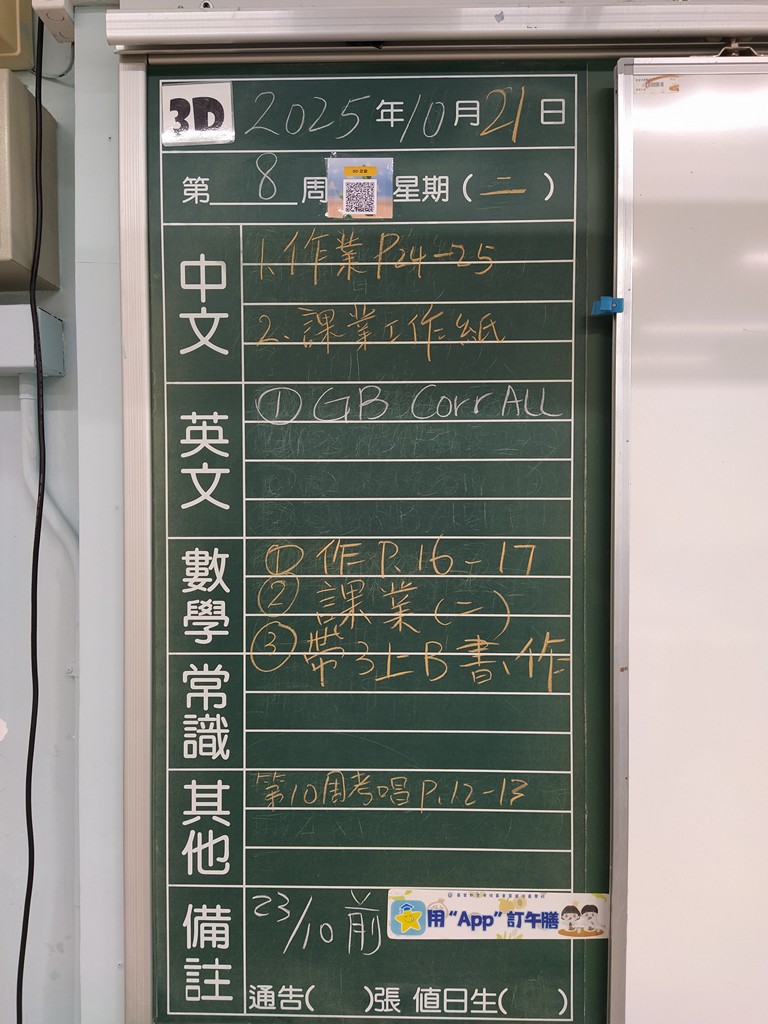 3D 2025年10月21日
第 8 周 星期(二)
中文
1. 作業 P24-25
2. 課業工作紙
英文
① GB Corr ALL
數學
① 作 P. 16-17
② 課業(二)
③ 帶3上B書、作
常識
其他
第10周考唱 P.12-13
備註
23/10 前
用“App”訂午膳
通告( )張 值日生( )